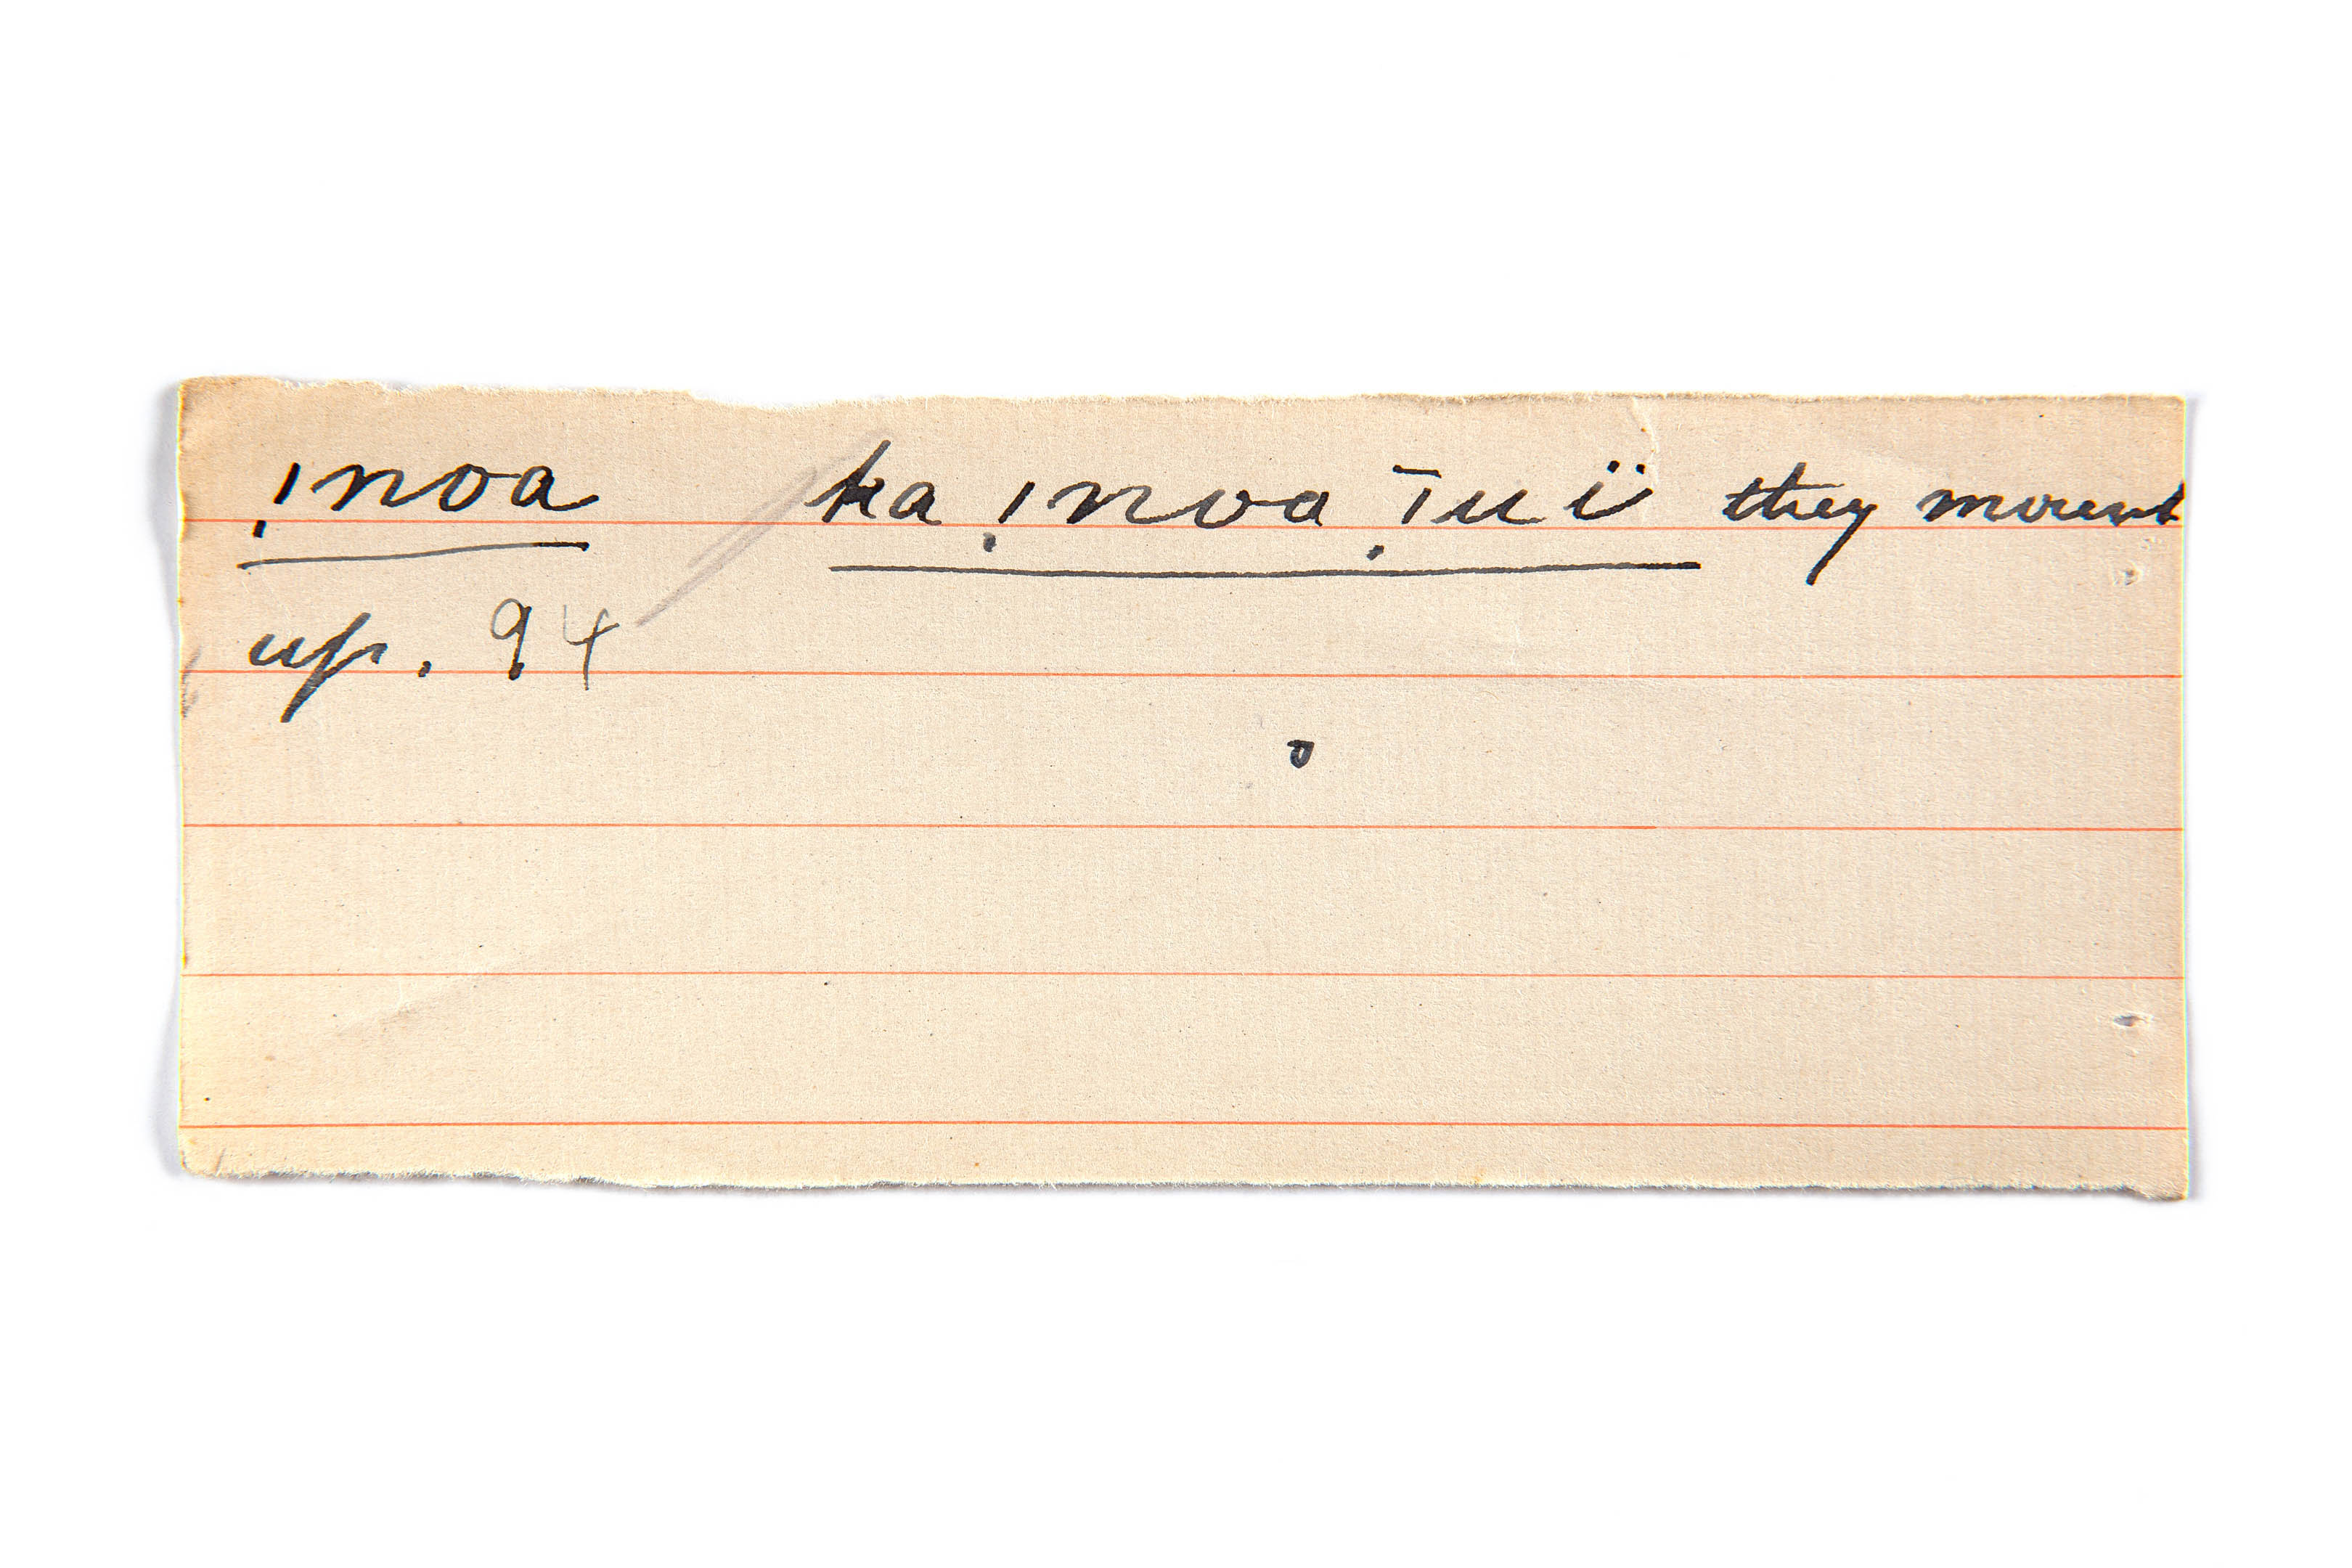 ịnoa ka ịnoa ị̄uï they mount
up. 94